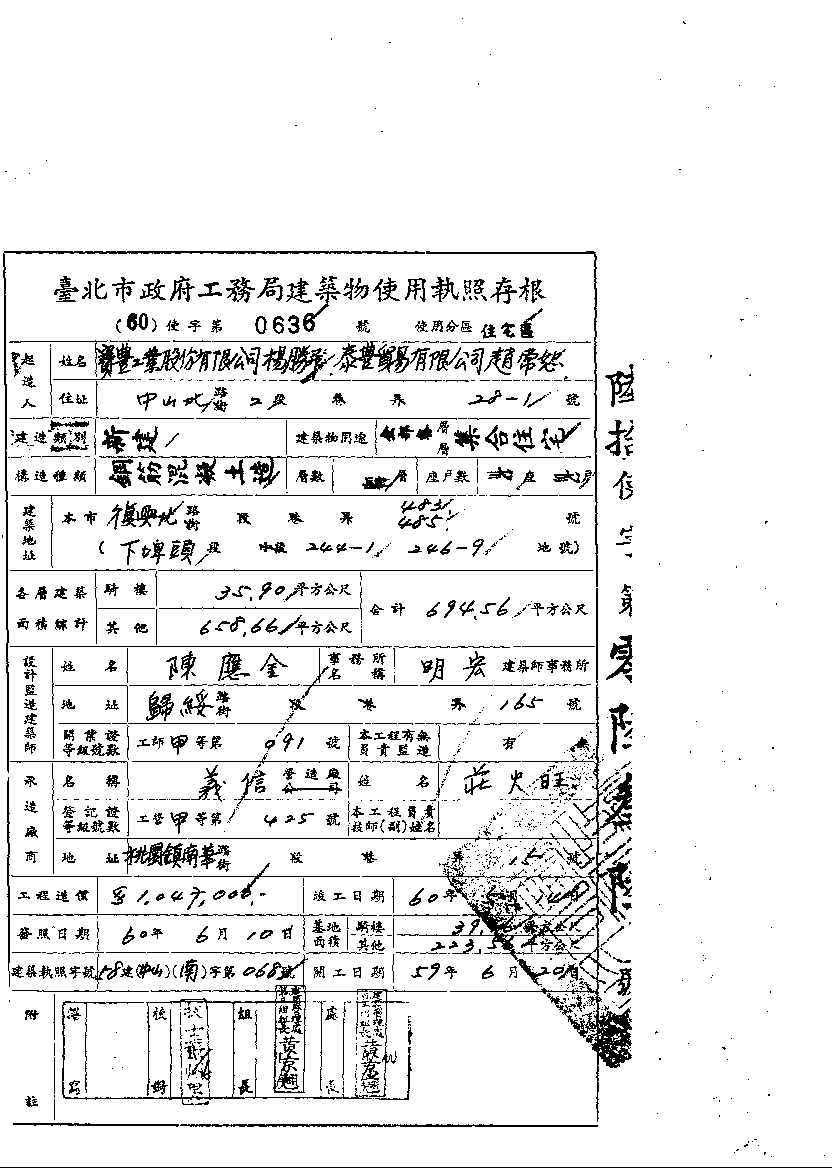 臺北市政府工務局建築物使用執照存根
(60) 使字第 0636 號 使用分區 住宅區
起造人 姓名 寶豐工業股份有限公司楊勝 泰豐貿易有限公司趙常恕
住址 中山北路街 2 段 巷 弄 28-1 號
建造類別 新建 建築物用途 層層 集合住宅
構造種類 鋼筋混凝土造 層數 層 座戶數 座
建築地址 本市 復興北路街 段 巷 弄 483 485 號
( 下埤頭段 小段 244-1 246-9 地號)
各層建築面積綜計 騎樓 35.90 平方公尺 合計 694.56 平方公尺
其他 658.66 平方公尺
設計監造建築師 姓名 陳應全 事務所名稱 明宏 建築師事務所
地址 歸綏路街 段 巷 弄 165 號
開業證等級號數 工師甲等第 091 號 本工程有無負責監造 有 無
承造廠商 名稱 義信 營造廠公司 姓名 莊火旺
登記證等級號數 工營甲等第 425 號 本工程負責技師(副)姓名
地址 桃園鎮南華路街 段 巷 弄 15 號
工程造價 1,047,000.- 竣工日期 60年 月 14日
發照日期 60年 6月 10日 基地面積 騎樓 平方公尺
其他 223.56 平方公尺
建築執照字號 58建(中山)(南)字第068號 開工日期 59年 6月 20日
附註
處長
組長
陸拾使字第零陸參陸號